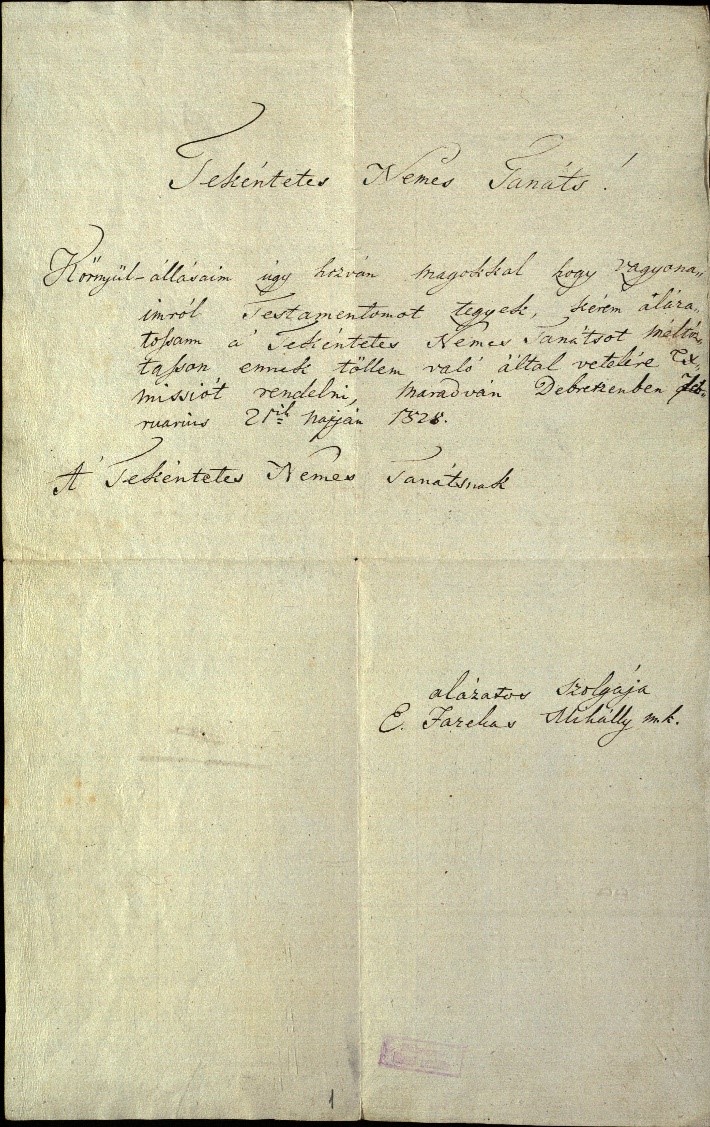 Tekéntetes Nemes Tanáts!
Környűl-állásaim úgy hozván magokkal hogy vagyona„
imról Testamentomot tegyek, kérem aláza„
toſsam a' Tekéntetes Nemes Tanátsot méltóz„
taſson ennek tőllem való által vetelére
missiót rendelni, maradván Debretzenben Feb„
ruarius 21ik napján 1828.
A' Tekéntetes Nemes Tanátsnak
alázatos szolgája
E. Fazekas Mihálly mk.
1